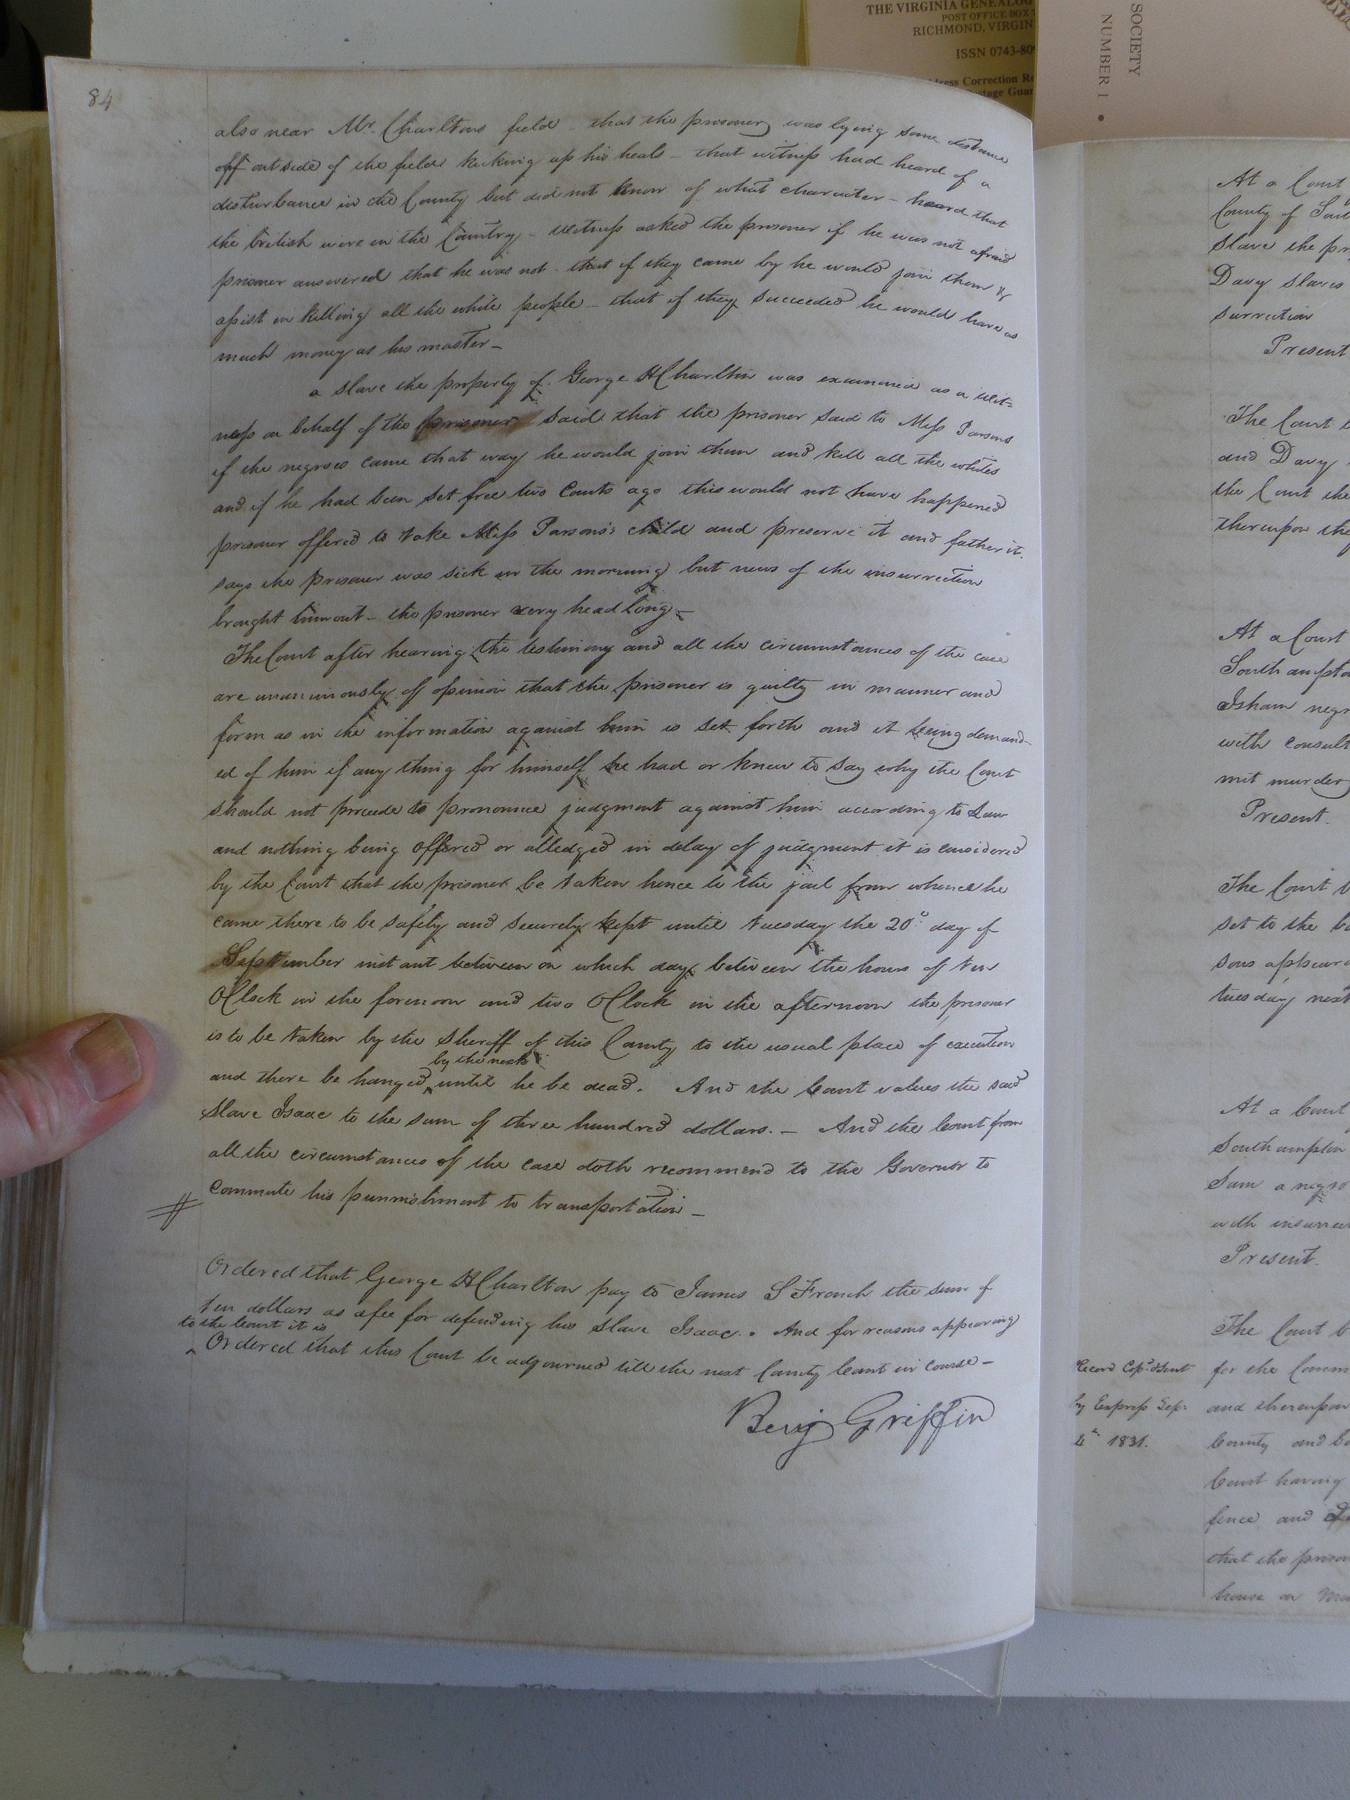 THE VIRGINIA GENEALOG
POST OFFICE BOX
RICHMOND, VIRGIN
ISSN 0743-809
dress Correction Re
stage Guar
SOCIETY
NUMBER 1
84
also near Mr. Charltons field – that the prisoner was lying some distance
off outside of the field kicking up his heels – that witness had heard of a
disturbance in the County but did not know of what character – heard that
the british were in the Country – Witness asked the prisoner if he was not afraid
prisoner answered that he was not – that if they came by he would join them &
assist in killing all the white people – that if they succeeded he would have as
much money as his master –
a slave the property of George H Charlton was examined as a wit-
ness on behalf of the prisoner said that the prisoner said to Miss Parsons
if the negroes came that way he would join them and kill all the whites
and if he had been set free two Courts ago this would not have happened
prisoner offered to take Miss Parsons's child and preserve it and father it.
says the prisoner was sick in the morning but news of the insurrection
brought him out – the prisoner very head long –
The Court after hearing the testimony and all the circumstances of the case
are unanimously of opinion that the prisoner is guilty in manner and
form as in the information against him is set forth and it being demand-
ed of him if any thing for himself he had or knew to say why the Court
should not procede to pronounce judgment against him according to Law
and nothing being offered or alledged in delay of judgment it is considered
by the Court that the prisoner be taken hence to the jail from whence he
came there to be safely and securely kept until tuesday the 20th day of
September instant between on which day between the hours of ten
OClock in the forenoon and two OClock in the afternoon the prisoner
is to be taken by the Sheriff of this County to the usual place of execution
by the neck
and there be hanged ^ until he be dead. And the Court values the said
slave Isaac to the sum of three hundred dollars. – And the Court from
all the circumstances of the case doth recommend to the Governor to
commute his punnishment to transportation –
Ordered that George H Charlton pay to James S French the sum of
ten dollars as a fee for defending his slave Isaac. And for reasons appearing
to the Court it is
^ Ordered that this Court be adjourned till the next County Court in course –
Benj Griffin
At a Court
County of Sou
slave the pr
Davy slaves
surrection
Present
The Court
and Davy
the Court the
thereupon the
At a Court
Southampto
Isham negr
with consult
mit murder
Present.
The Court
set to the ba
sons appeare
tuesday next
At a Court
Southampton
Sam a negro
with insurrec
Present.
The Court
Record Copd & sent
by Express Sepr
4th 1831.
for the Comm
and thereupon
County and Co
Court having
fence and
that the prison
house on Mon